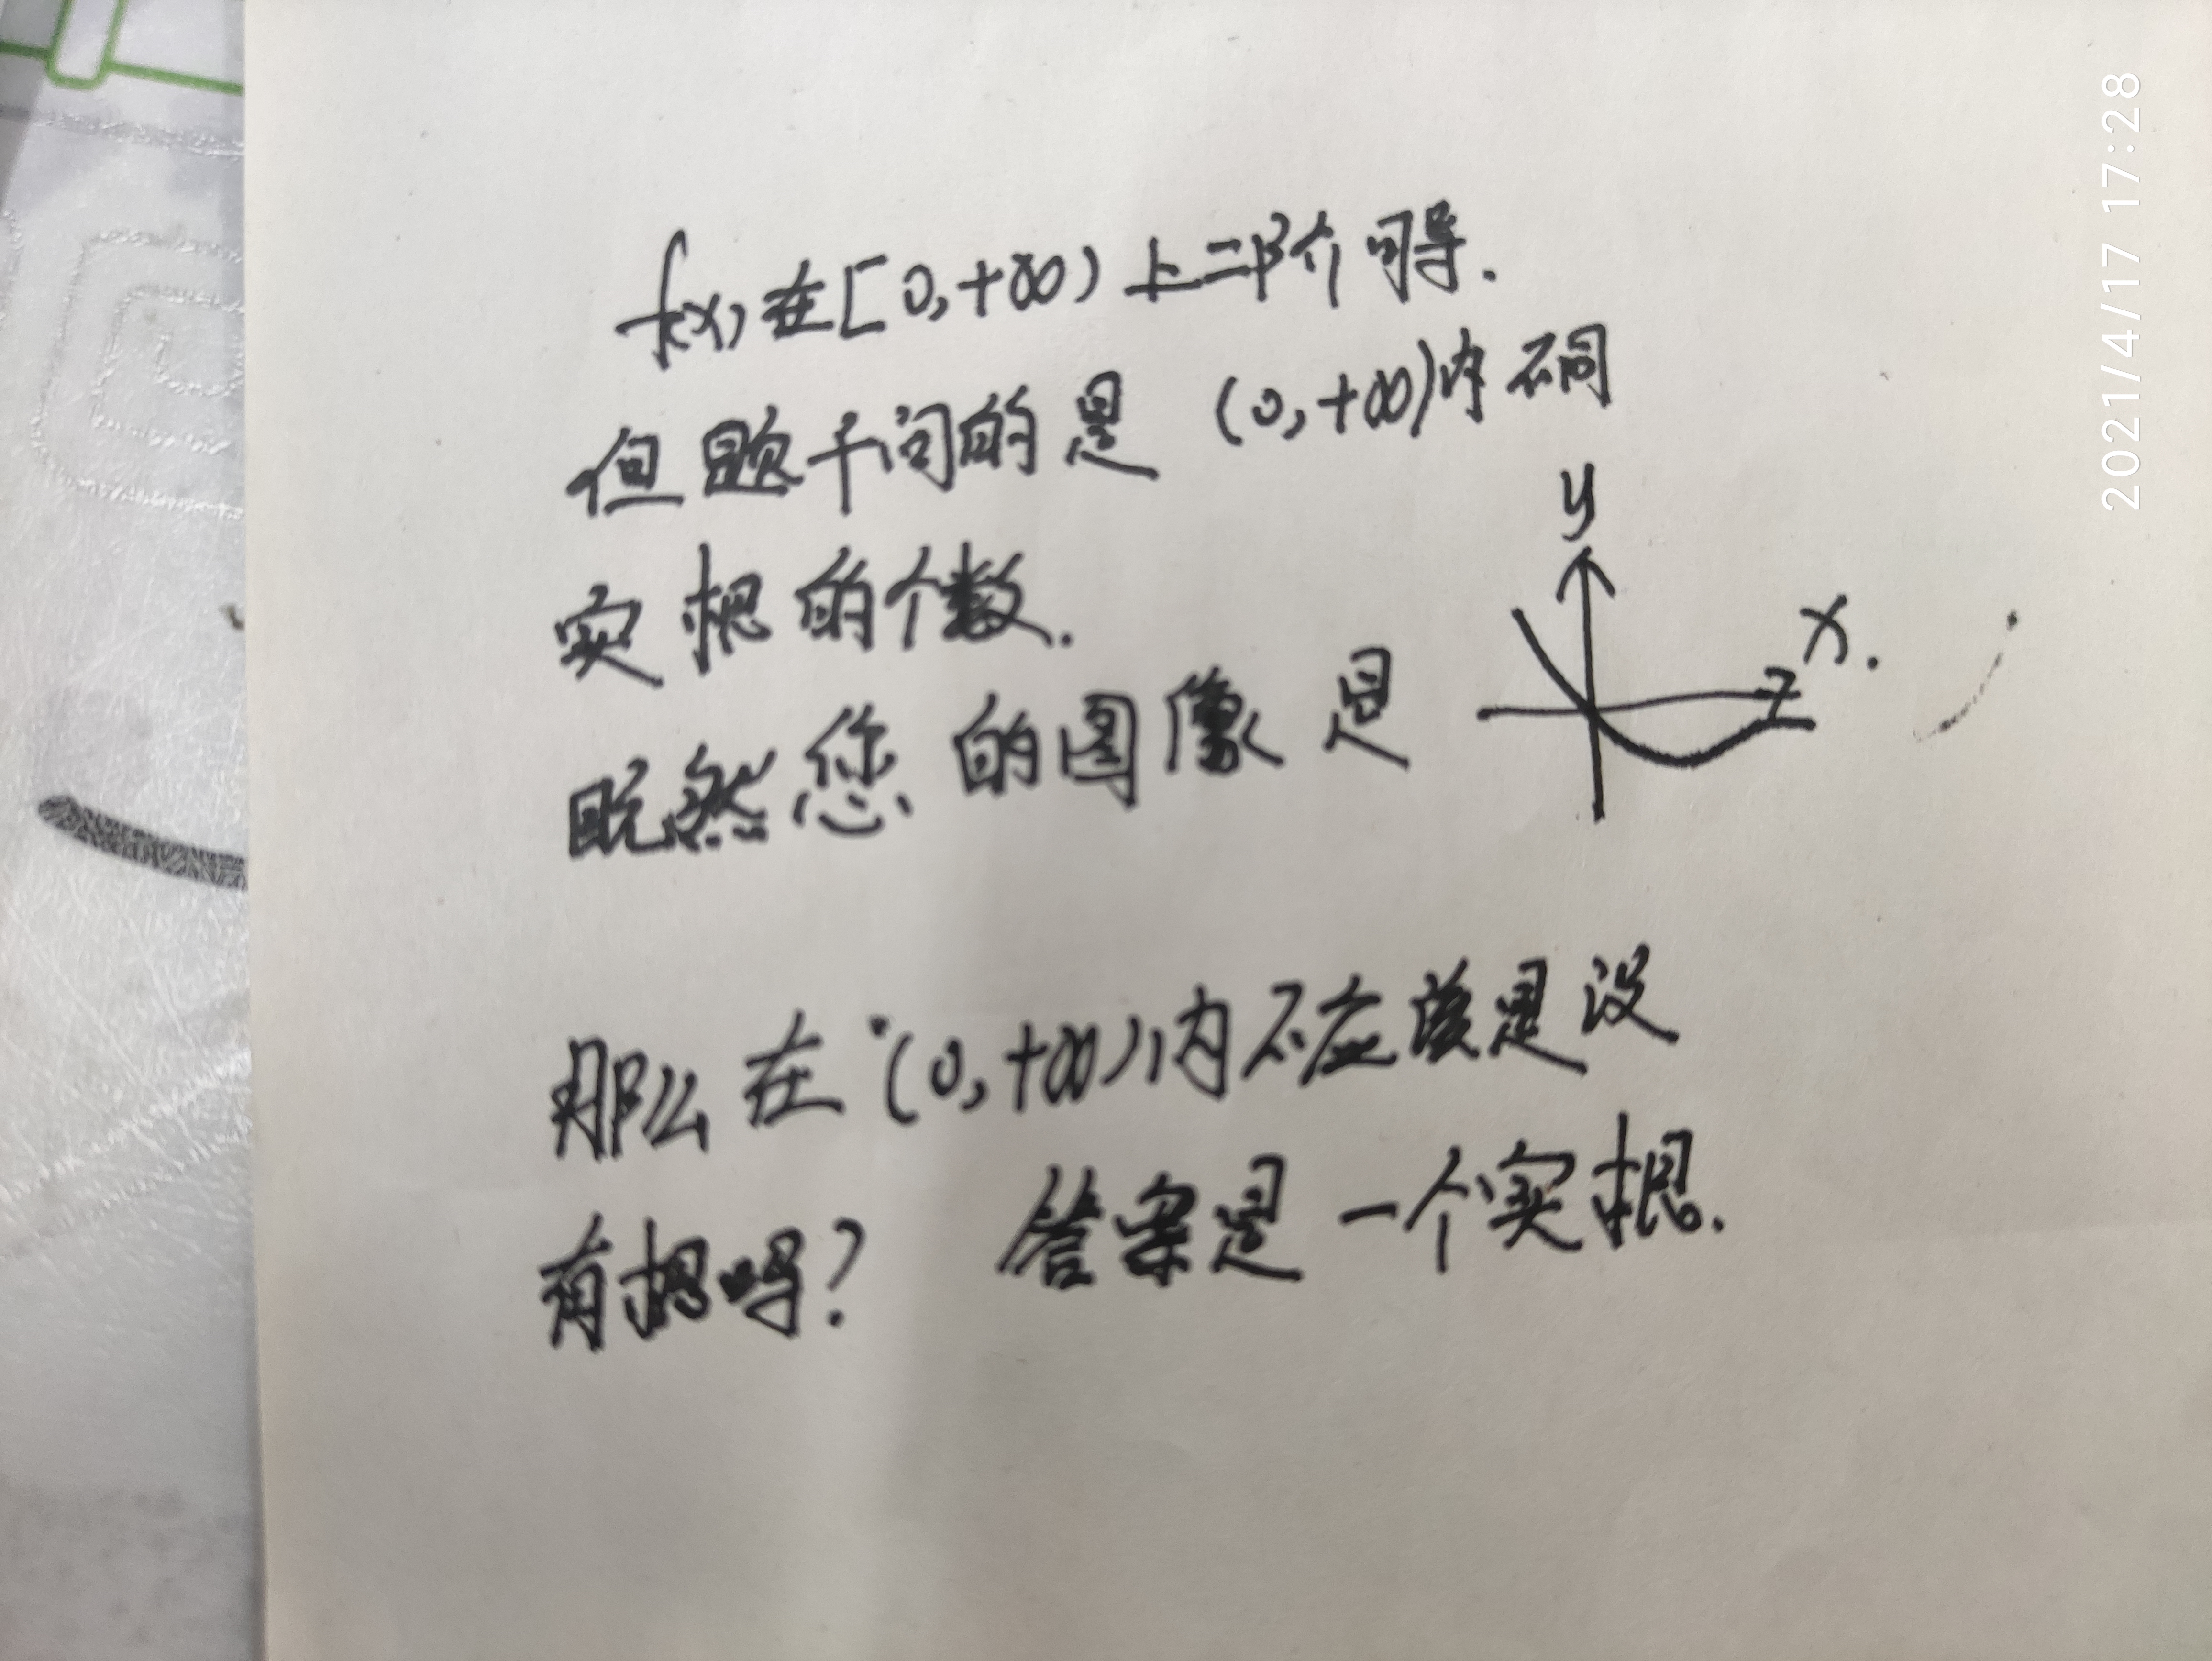 f(x)在[0,+∞)上二阶可导.
但题干问的是 (0,+∞)内有何
实根的个数.
既然您的图像是
y
x.
那么在(0,+∞)内不应该是没
有根吗? 答案是一个实根.
2021/4/17 17:28